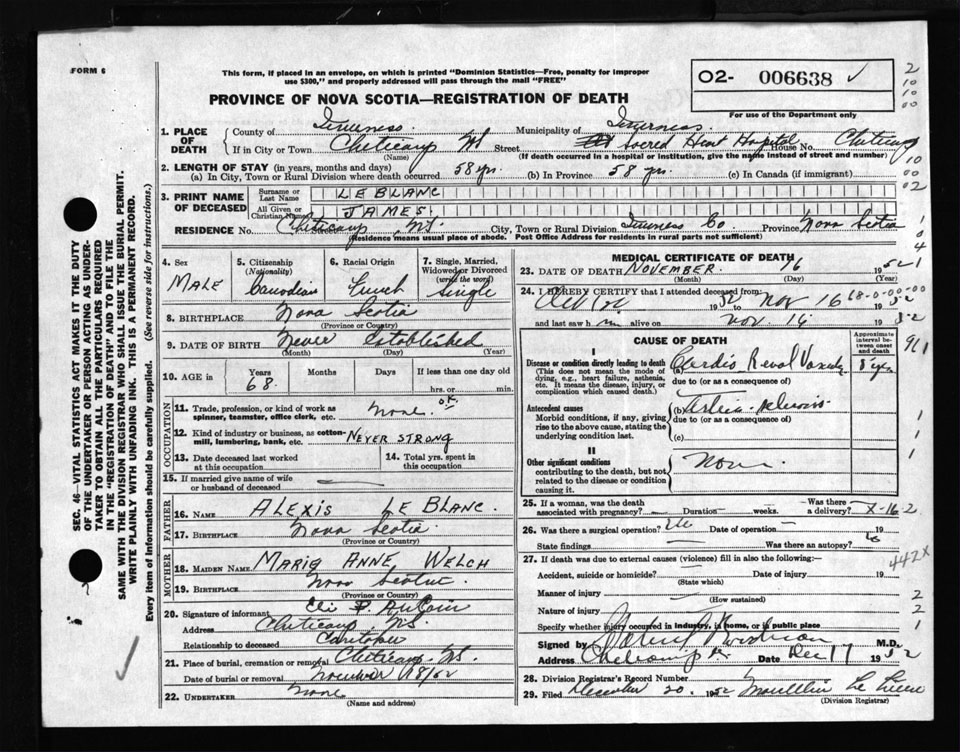 FORM 6
This form, if placed in an envelope, on which is printed "Dominion Statistics—Free, penalty for improper
use $300," and properly addressed will pass through the mail "FREE"
02- 006638 ✓
For use of the Department only
PROVINCE OF NOVA SCOTIA—REGISTRATION OF DEATH
1. PLACE OF DEATH
County of Inverness Municipality of Inverness
If in City or Town Cheticamp NS Street Sacred Heart Hospital House No. Cheticamp
(Name) (If death occurred in a hospital or institution, give the name instead of street and number)
2. LENGTH OF STAY (in years, months and days)
(a) In City, Town or Rural Division where death occurred 58 yrs. (b) In Province 58 yrs. (c) In Canada (if immigrant)
3. PRINT NAME OF DECEASED
Surname or Last Name LE BLANC
All Given or Christian Names JAMES
RESIDENCE No. Street Cheticamp, NS. City, Town or Rural Division Inverness Co. Province Nova Scotia
(Residence means usual place of abode. Post Office Address for residents in rural parts not sufficient)
4. Sex
MALE
5. Citizenship
(Nationality)
Canadian
6. Racial Origin
French
7. Single, Married,
Widowed or Divorced
(write the word)
Single
8. BIRTHPLACE Nova Scotia
(Province or Country)
9. DATE OF BIRTH Never Established
(Month) (Day) (Year)
10. AGE in
Years Months Days If less than one day old
68. hrs. or min.
OCCUPATION
11. Trade, profession, or kind of work as
spinner, teamster, office clerk, etc. None. O.K.
12. Kind of industry or business, as cotton-
mill, lumbering, bank, etc. NEVER STRONG
13. Date deceased last worked
at this occupation
14. Total yrs. spent in
this occupation
15. If married give name of wife
or husband of deceased
FATHER
16. NAME ALEXIS LE BLANC.
17. BIRTHPLACE Nova Scotia
(Province or Country)
MOTHER
18. MAIDEN NAME MARIG ANNE WELCH
19. BIRTHPLACE Nova Scotia
(Province or Country)
20. Signature of informant Eli P AuCoin
Address Cheticamp, NS.
Relationship to deceased Caretaker
21. Place of burial, cremation or removal Cheticamp NS.
Date of burial or removal 18/52
22. UNDERTAKER None
(Name and address)
MEDICAL CERTIFICATE OF DEATH
23. DATE OF DEATH NOVEMBER 16 1952
24. I HEREBY CERTIFY that I attended deceased from:
1952 Nov 16 1952
and last saw h m alive on Nov. 16 1952
CAUSE OF DEATH
Approximate
interval between
onset
and death
I
Disease or condition directly leading to death
(This does not mean the mode of
dying, e.g., heart failure, asthenia,
etc. It means the disease, injury, or
complication which caused death.)
(a) Cardio Renal 8 yrs
due to (or as a consequence of)
Antecedent causes
Morbid conditions, if any, giving
rise to the above cause, stating the
underlying condition last.
(b)
due to (or as a consequence of)
(c)
II
Other significant conditions
contributing to the death, but not
related to the disease or condition
causing it.
None
25. If a woman, was the death
associated with pregnancy? Duration weeks. Was there a delivery?
26. Was there a surgical operation? Date of operation 19
State findings Was there an autopsy?
27. If death was due to external causes (violence) fill in also the following:
Accident, suicide or homicide? Date of injury 19
(State which)
Manner of injury
(How sustained)
Nature of injury
Specify whether injury occurred in industry, in home, or in public place
Signed by M.D.
Address Cheticamp Date Dec 17 1952
28. Division Registrar's Record Number
29. Filed December 20. 1952
(Division Registrar)
2
10
10
00
10
00
02
1
0
4
1
68-0-00-00
911
1
1
1
X-16-2
442X
2
2
1
SEC. 46—VITAL STATISTICS ACT MAKES IT THE DUTY
OF THE UNDERTAKER OR PERSON ACTING AS UNDER-
TAKER TO OBTAIN ALL THE PARTICULARS REQUIRED
IN THE "REGISTRATION OF DEATH" AND TO FILE THE
SAME WITH THE DIVISION REGISTRAR WHO SHALL ISSUE THE BURIAL PERMIT.
WRITE PLAINLY WITH UNFADING INK. THIS IS A PERMANENT RECORD.
Every item of information should be carefully supplied. (See reverse side for instructions.)